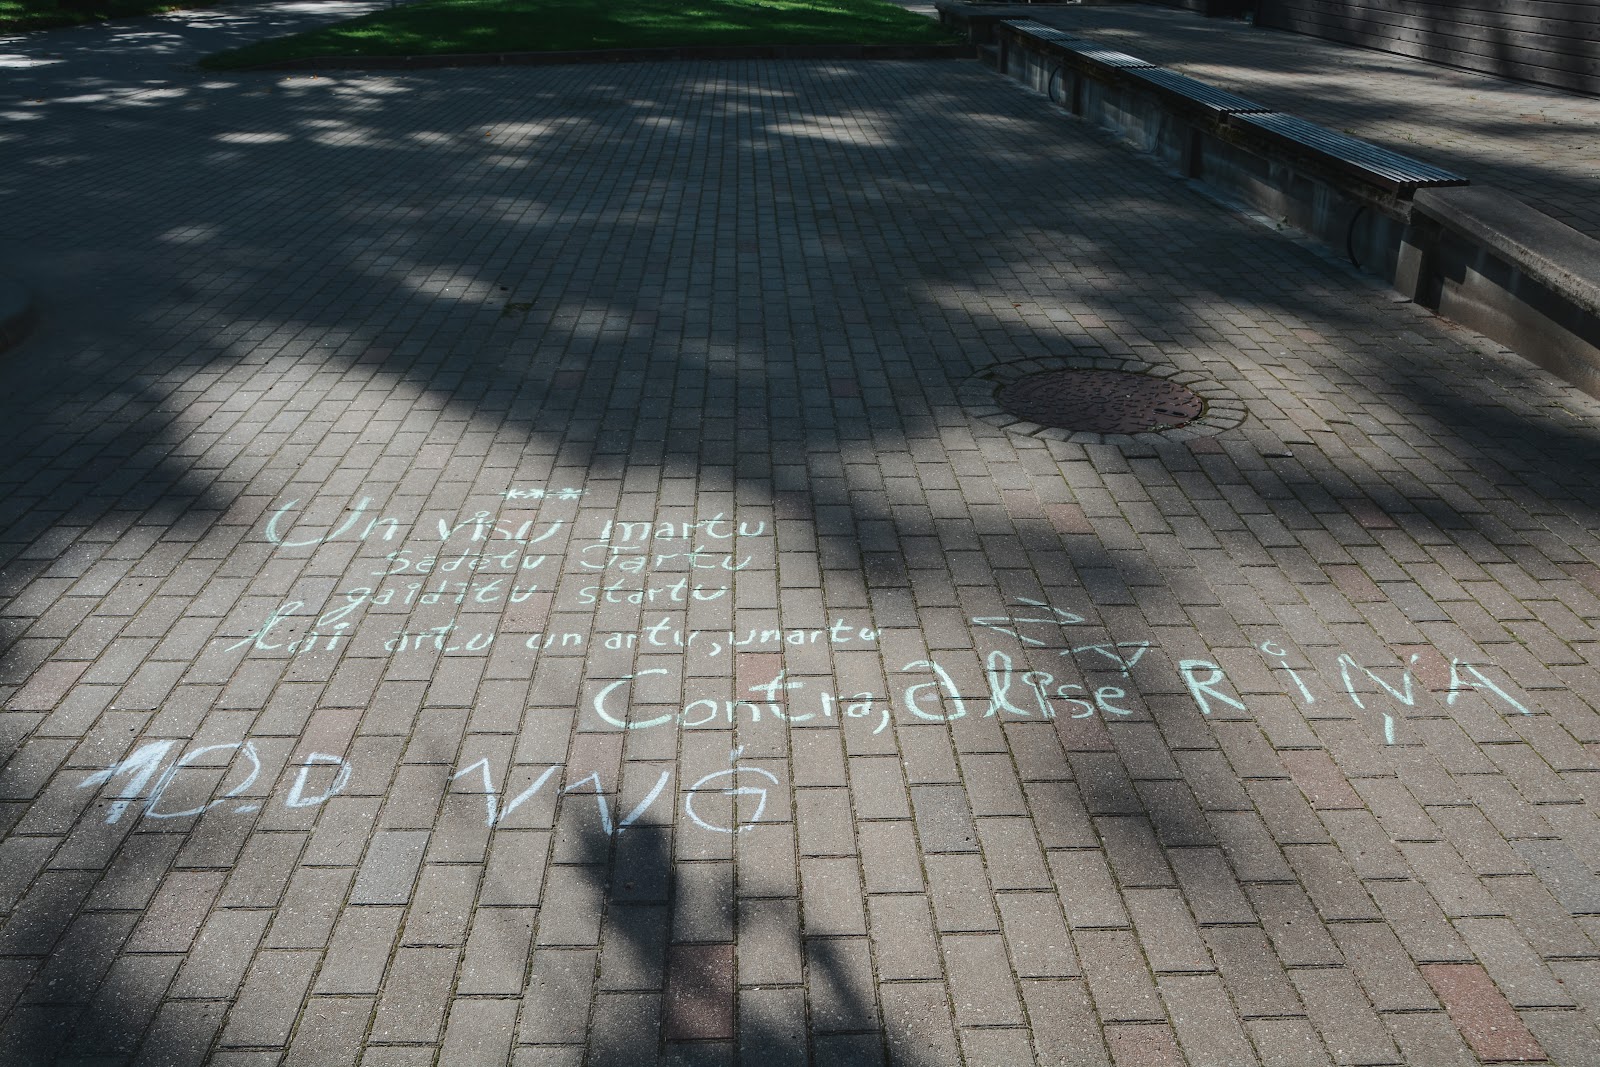 ***
Un visu martu
Sēdētu Tartu
gaidītu startu
lai artu un artu, un artu
Contra, Alise RIŅĶA
10.D VVĢ